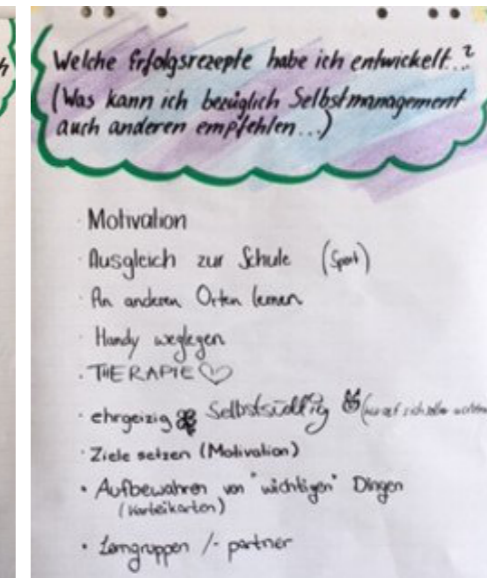 h
Welche Erfolgsrezepte habe ich entwickelt..?
(Was kann ich bezüglich Selbstmanagement
auch anderen empfehlen...)
· Motivation
· Ausgleich zur Schule (Sport)
· An anderen Orten lernen
· Handy weglegen
· THERAPIE ♡
· ehrgeizig
· Ziele setzen (Motivation)
• Aufbewahren von "wichtigen" Dingen
(Karteikarten)
• Lerngruppen /- partner